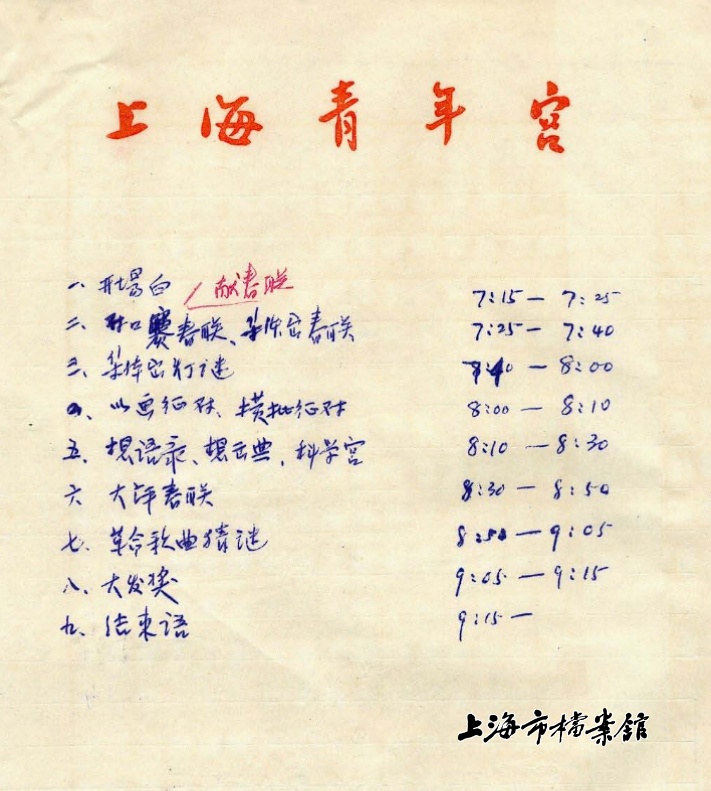 上海青年宫
一、开场白 献春联 7:15 — 7:25
二、对口赛春联、集体出春联 7:25 — 7:40
三、集体出灯谜 7:40 — 8:00
四、以画征对、横批征对 8:00 — 8:10
五、想语录、想出典、科学宫 8:10 — 8:30
六 大评春联 8:30 — 8:50
七、革命歌曲猜谜 8:50 — 9:05
八、大发奖 9:05 — 9:15
九、结束语 9:15 —
上海市檔案館